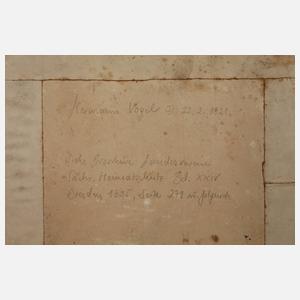 Hermann Vogel 22.2.1921.
Siehe Zeitschrift Landesverein
Sächs. Heimatschutz Bd. XXIV
Dresden 1935, Seite 271 u. folgende